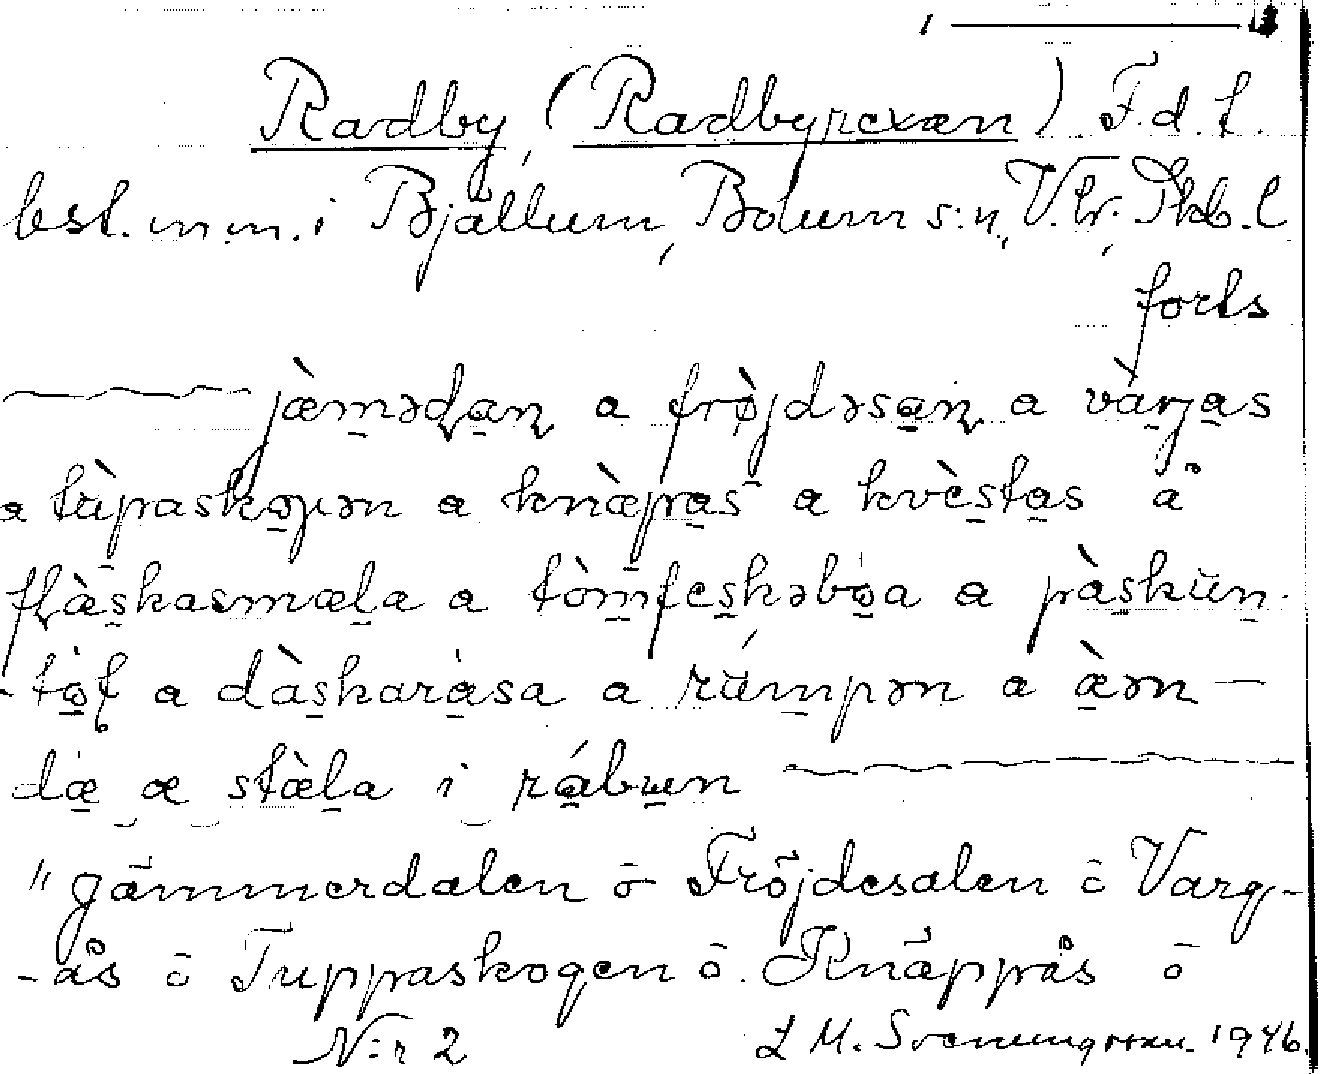 Radby, (Radbyrexæn) F.d. f.
bst. m.m. i Bjällum, Bolum s:n, V.hr. Skb. l
forts
jæ̀mədaɳ a frø̀jdəsaɳ a vàrjas
a tùpaskoɡən a knæ̀pas a kvèstas å
flæ̀skasmæla a tòmfeskəbøa a pàskùn-
-tòf a dàskaràsa a rúmpən a æ̀ən —
dæ æ stæ̀la i rábun
"Gämmerdalen ō Fröjdesalen ō Varg-
-ås ō Tuppaskogen ō Knäppås ō
N:r 2 L M. Svenungsson. 1946.